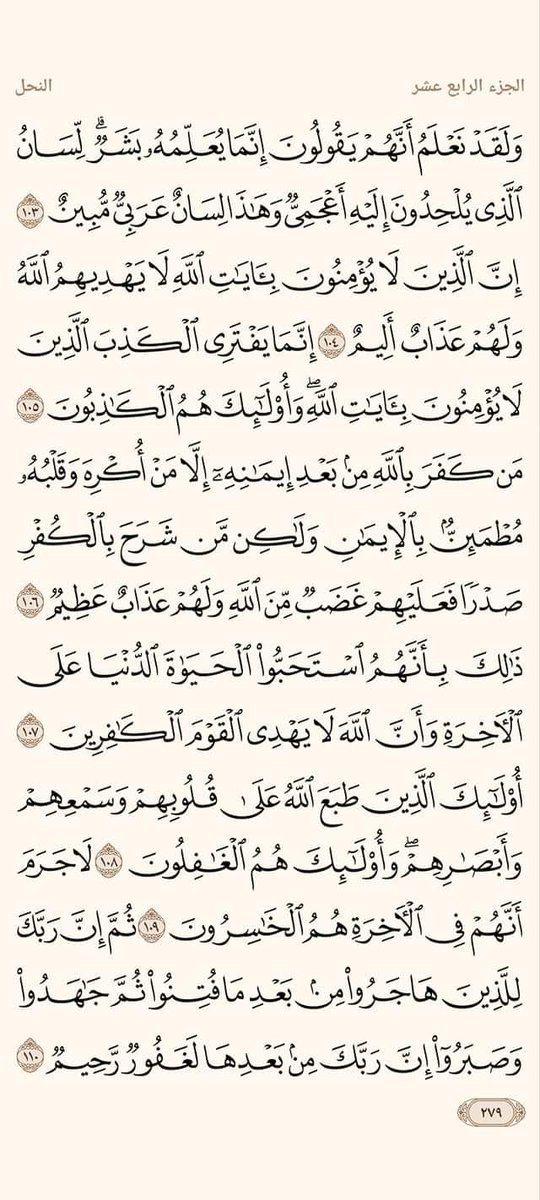 الجزء الرابع عشر
النحل
وَلَقَدْ نَعْلَمُ أَنَّهُمْ يَقُولُونَ إِنَّمَا يُعَلِّمُهُۥ بَشَرٌۗ لِّسَانُ
ٱلَّذِى يُلْحِدُونَ إِلَيْهِ أَعْجَمِىٌّ وَهَٰذَا لِسَانٌ عَرَبِىٌّ مُّبِينٌ ١٠٣
إِنَّ ٱلَّذِينَ لَا يُؤْمِنُونَ بِـَٔايَٰتِ ٱللَّهِ لَا يَهْدِيهِمُ ٱللَّهُ
وَلَهُمْ عَذَابٌ أَلِيمٌ ١٠٤ إِنَّمَا يَفْتَرِى ٱلْكَذِبَ ٱلَّذِينَ
لَا يُؤْمِنُونَ بِـَٔايَٰتِ ٱللَّهِۖ وَأُو۟لَٰٓئِكَ هُمُ ٱلْكَٰذِبُونَ ١٠٥
مَن كَفَرَ بِٱللَّهِ مِنۢ بَعْدِ إِيمَٰنِهِۦٓ إِلَّا مَنْ أُكْرِهَ وَقَلْبُهُۥ
مُطْمَئِنٌّۢ بِٱلْإِيمَٰنِ وَلَٰكِن مَّن شَرَحَ بِٱلْكُفْرِ
صَدْرًا فَعَلَيْهِمْ غَضَبٌ مِّنَ ٱللَّهِ وَلَهُمْ عَذَابٌ عَظِيمٌ ١٠٦
ذَٰلِكَ بِأَنَّهُمُ ٱسْتَحَبُّوا۟ ٱلْحَيَوٰةَ ٱلدُّنْيَا عَلَى
ٱلْـَٔاخِرَةِ وَأَنَّ ٱللَّهَ لَا يَهْدِى ٱلْقَوْمَ ٱلْكَٰفِرِينَ ١٠٧
أُو۟لَٰٓئِكَ ٱلَّذِينَ طَبَعَ ٱللَّهُ عَلَىٰ قُلُوبِهِمْ وَسَمْعِهِمْ
وَأَبْصَٰرِهِمْۖ وَأُو۟لَٰٓئِكَ هُمُ ٱلْغَٰفِلُونَ ١٠٨ لَا جَرَمَ
أَنَّهُمْ فِى ٱلْـَٔاخِرَةِ هُمُ ٱلْخَٰسِرُونَ ١٠٩ ثُمَّ إِنَّ رَبَّكَ
لِلَّذِينَ هَاجَرُوا۟ مِنۢ بَعْدِ مَا فُتِنُوا۟ ثُمَّ جَٰهَدُوا۟
وَصَبَرُوٓا۟ إِنَّ رَبَّكَ مِنۢ بَعْدِهَا لَغَفُورٌ رَّحِيمٌ ١١٠
٢٧٩